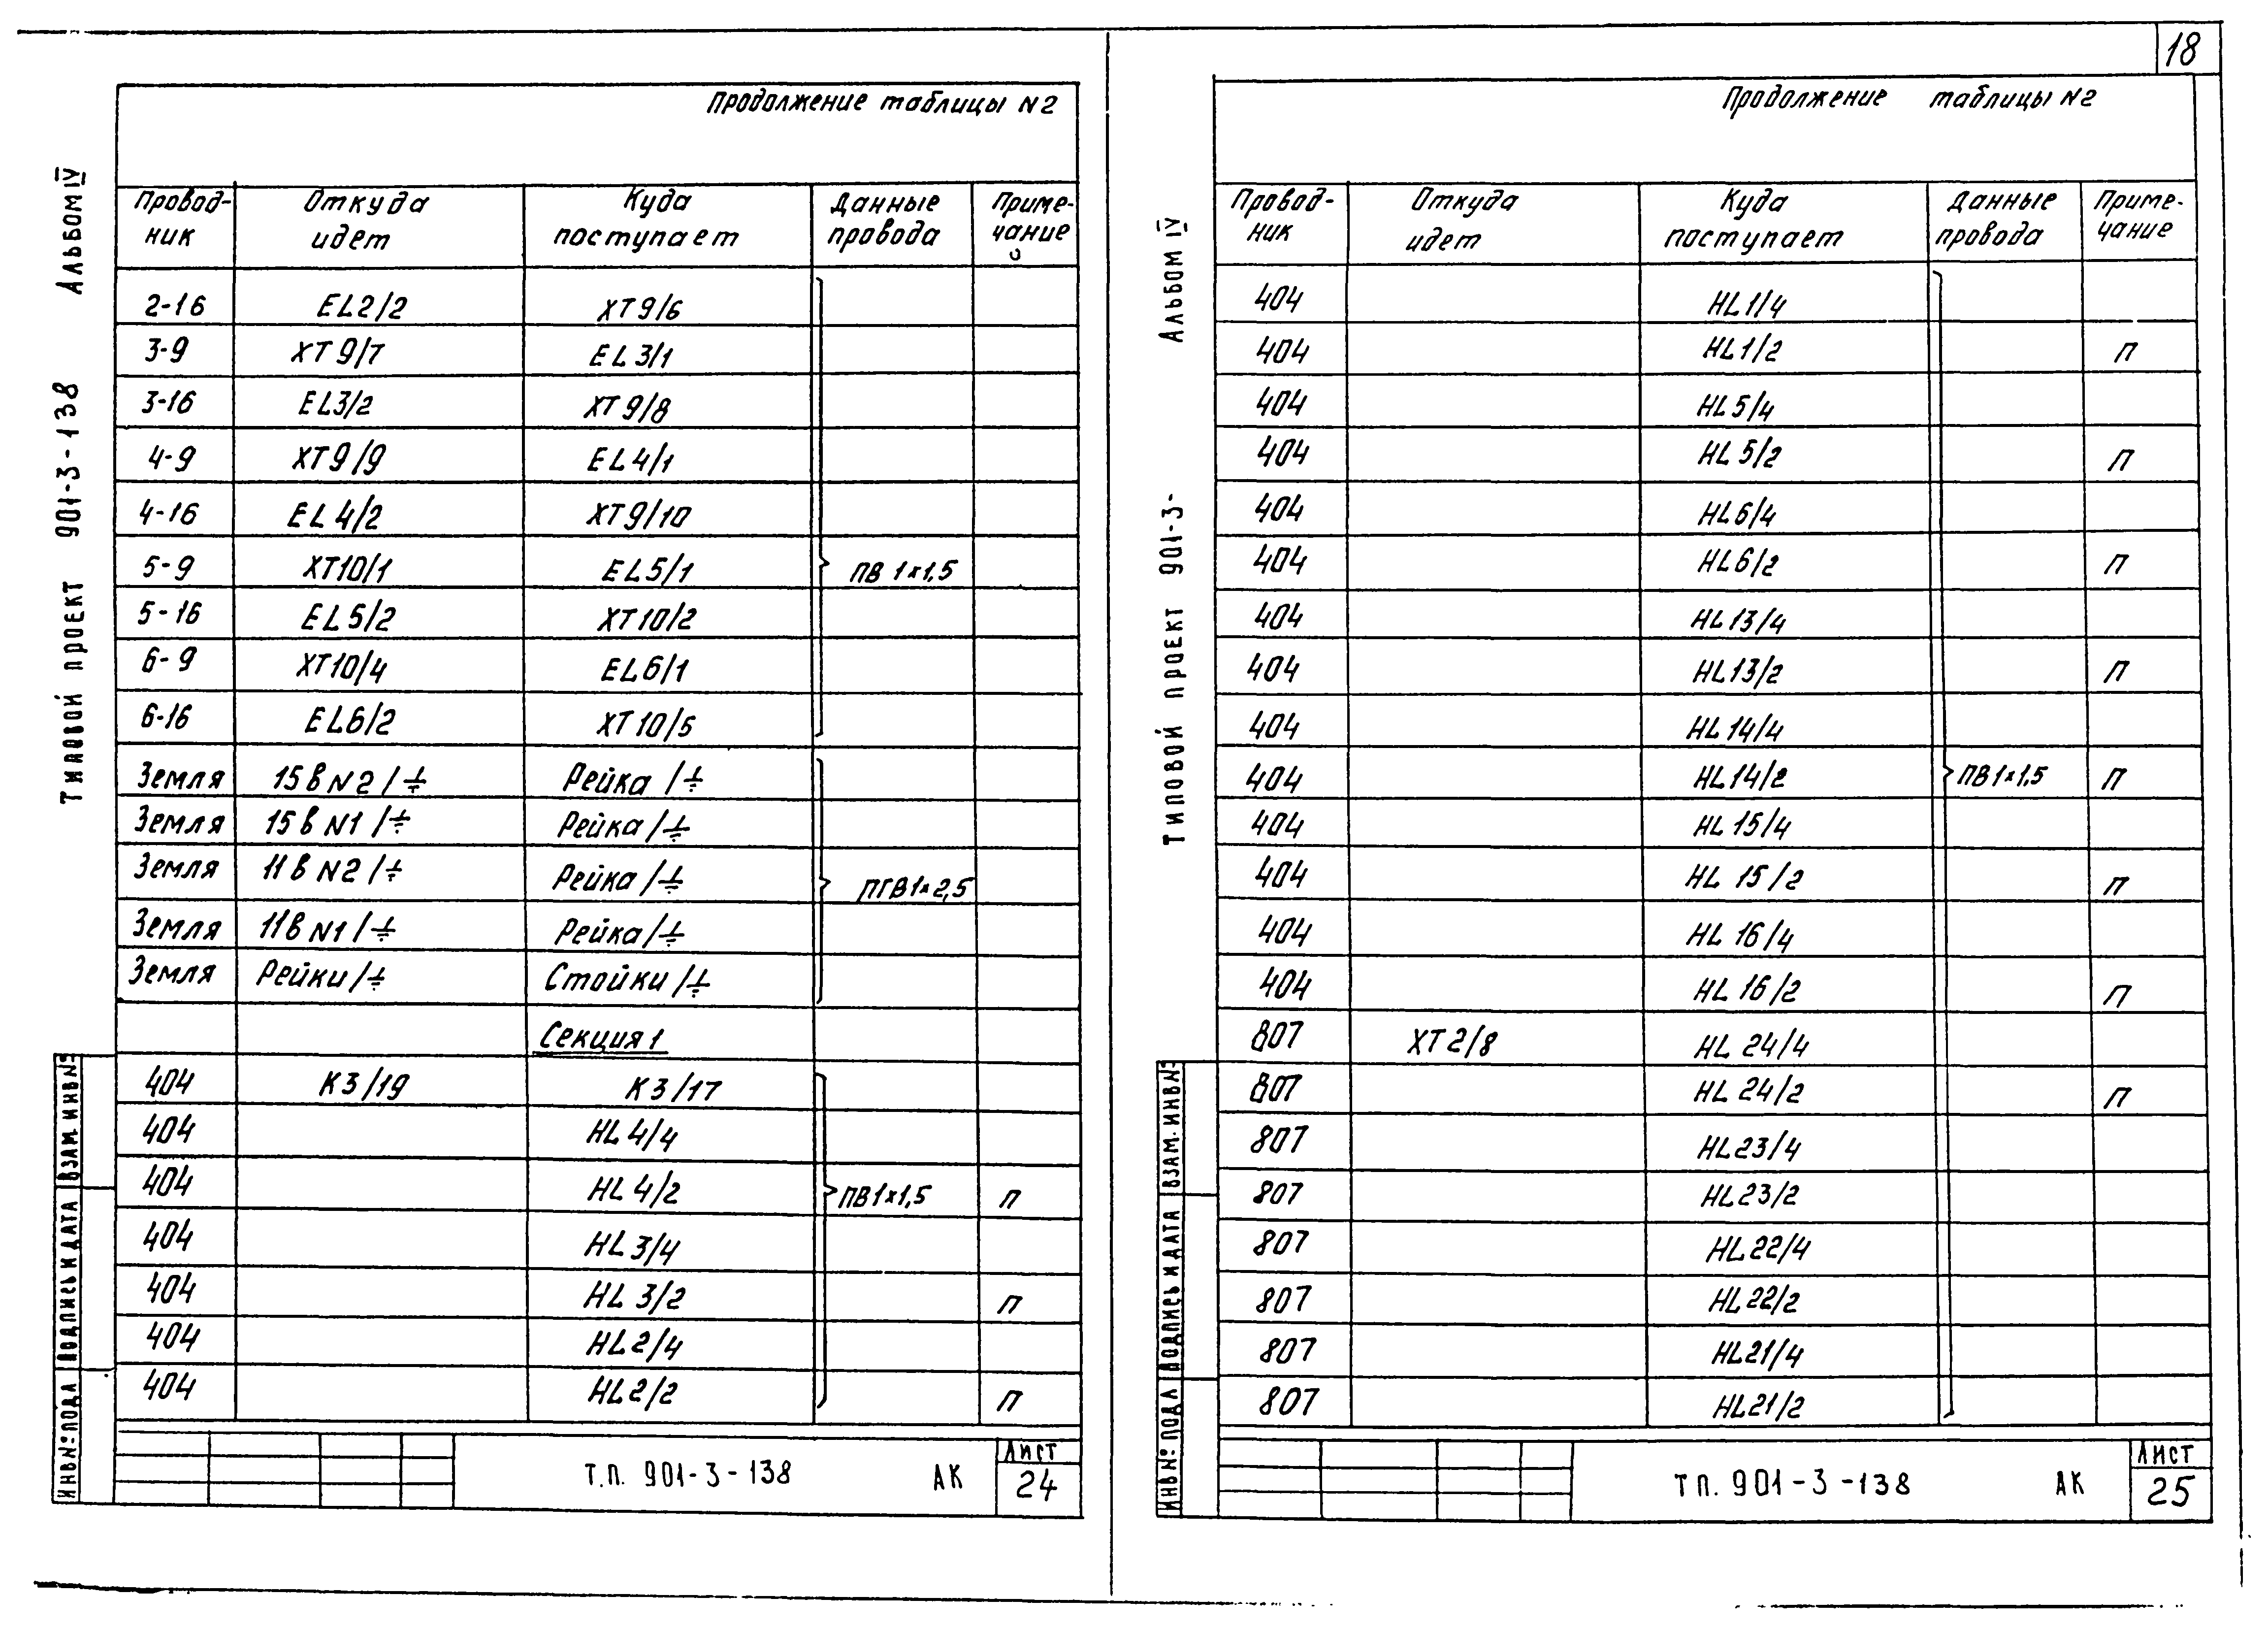 18
Продолжение таблицы N2
Провод-ник Откуда идет Куда поступает Данные провода Приме-чание
2-16 EL2/2 XT9/6
3-9 XT9/7 EL3/1
3-16 EL3/2 XT9/8
4-9 XT9/9 EL4/1
4-16 EL4/2 XT9/10
5-9 XT10/1 EL5/1 ПВ 1×1,5
5-16 EL5/2 XT10/2
6-9 XT10/4 EL6/1
6-16 EL6/2 XT10/5
Земля 15в N2/⏚ Рейка/⏚
Земля 15в N1/⏚ Рейка/⏚
Земля 11в N2/⏚ Рейка/⏚ ПГВ1×2,5
Земля 11в N1/⏚ Рейка/⏚
Земля Рейки/⏚ Стойки/⏚
Секция 1
404 К3/19 К3/17
404 HL4/4
404 HL4/2 ПВ1×1,5 П
404 HL3/4
404 HL3/2 П
404 HL2/4
404 HL2/2 П
Т.П. 901-3-138 АК
Лист
24
Альбом IV
Типовой проект 901-3-138
Взам. инв N:
Подпись и дата
Инв N: подл
Продолжение таблицы N2
Провод-ник Откуда идет Куда поступает Данные провода Приме-чание
404 HL1/4
404 HL1/2 П
404 HL5/4
404 HL5/2 П
404 HL6/4
404 HL6/2 П
404 HL13/4
404 HL13/2 П
404 HL14/4
404 HL14/2 ПВ1×1,5 П
404 HL15/4
404 HL15/2 П
404 HL16/4
404 HL16/2 П
807 XT2/8 HL24/4
807 HL24/2 П
807 HL23/4
807 HL23/2
807 HL22/4
807 HL22/2
807 HL21/4
807 HL21/2
Т П. 901-3-138 АК
Лист
25
Альбом IV
Типовой проект 901-3-
Взам. инв N:
Подпись и дата
Инв N: подл